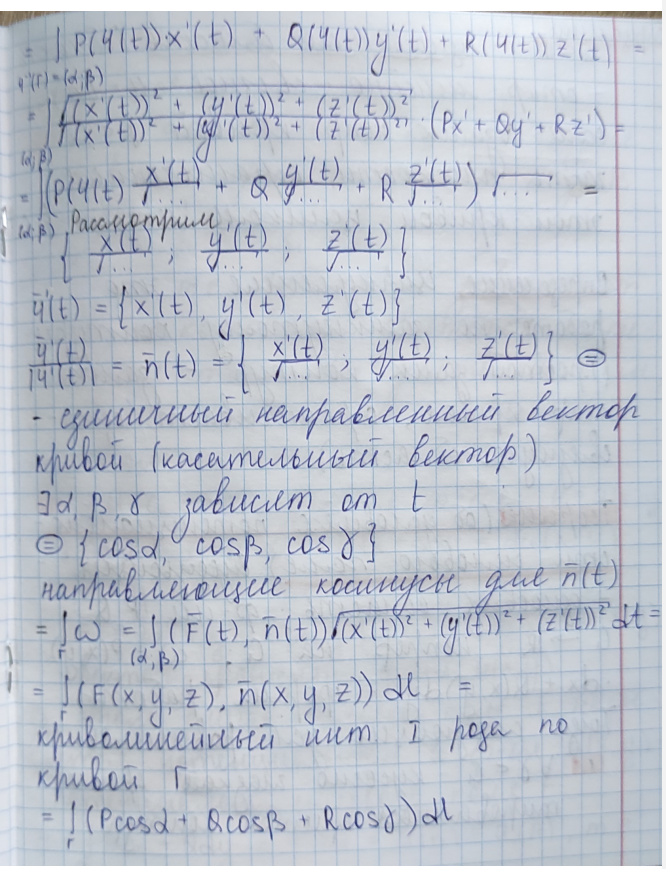 = ∫ P(Ч(t))·x'(t) + Q(Ч(t))y'(t) + R(Ч(t)) z'(t) =
Ч⁻¹(Г) = (α;β)
= ∫ √((x'(t))² + (y'(t))² + (z'(t))²) / √((x'(t))² + (y'(t))² + (z'(t))²) · (Px' + Qy' + Rz') =
(α;β)
= ∫ (P(Ч(t) x'(t)/√... + Q y'(t)/√... + R z'(t)/√...) √... =
(α;β) Рассмотрим
{ x'(t)/√... ; y'(t)/√... ; z'(t)/√... }
Ч̄'(t) = {x'(t), y'(t), z'(t)}
Ч̄'(t)/|Ч'(t)| = n̄(t) = { x'(t)/√... ; y'(t)/√... ; z'(t)/√... } ⊜
- единичный направленный вектор
кривой (касательный вектор)
∃ α, β, γ зависят от t
⊜ {cosα, cosβ, cosγ}
направляющие косинусы для n̄(t)
= ∫ ω = ∫ (F̄(t), n̄(t)) √((x'(t))² + (y'(t))² + (z'(t))²) dt =
Г (α;β)
= ∫ (F(x, y, z), n̄(x, y, z)) dl =
Г
криволинейный инт I рода по
кривой Г
= ∫ (Pcosα + Qcosβ + Rcosγ) dl
Г